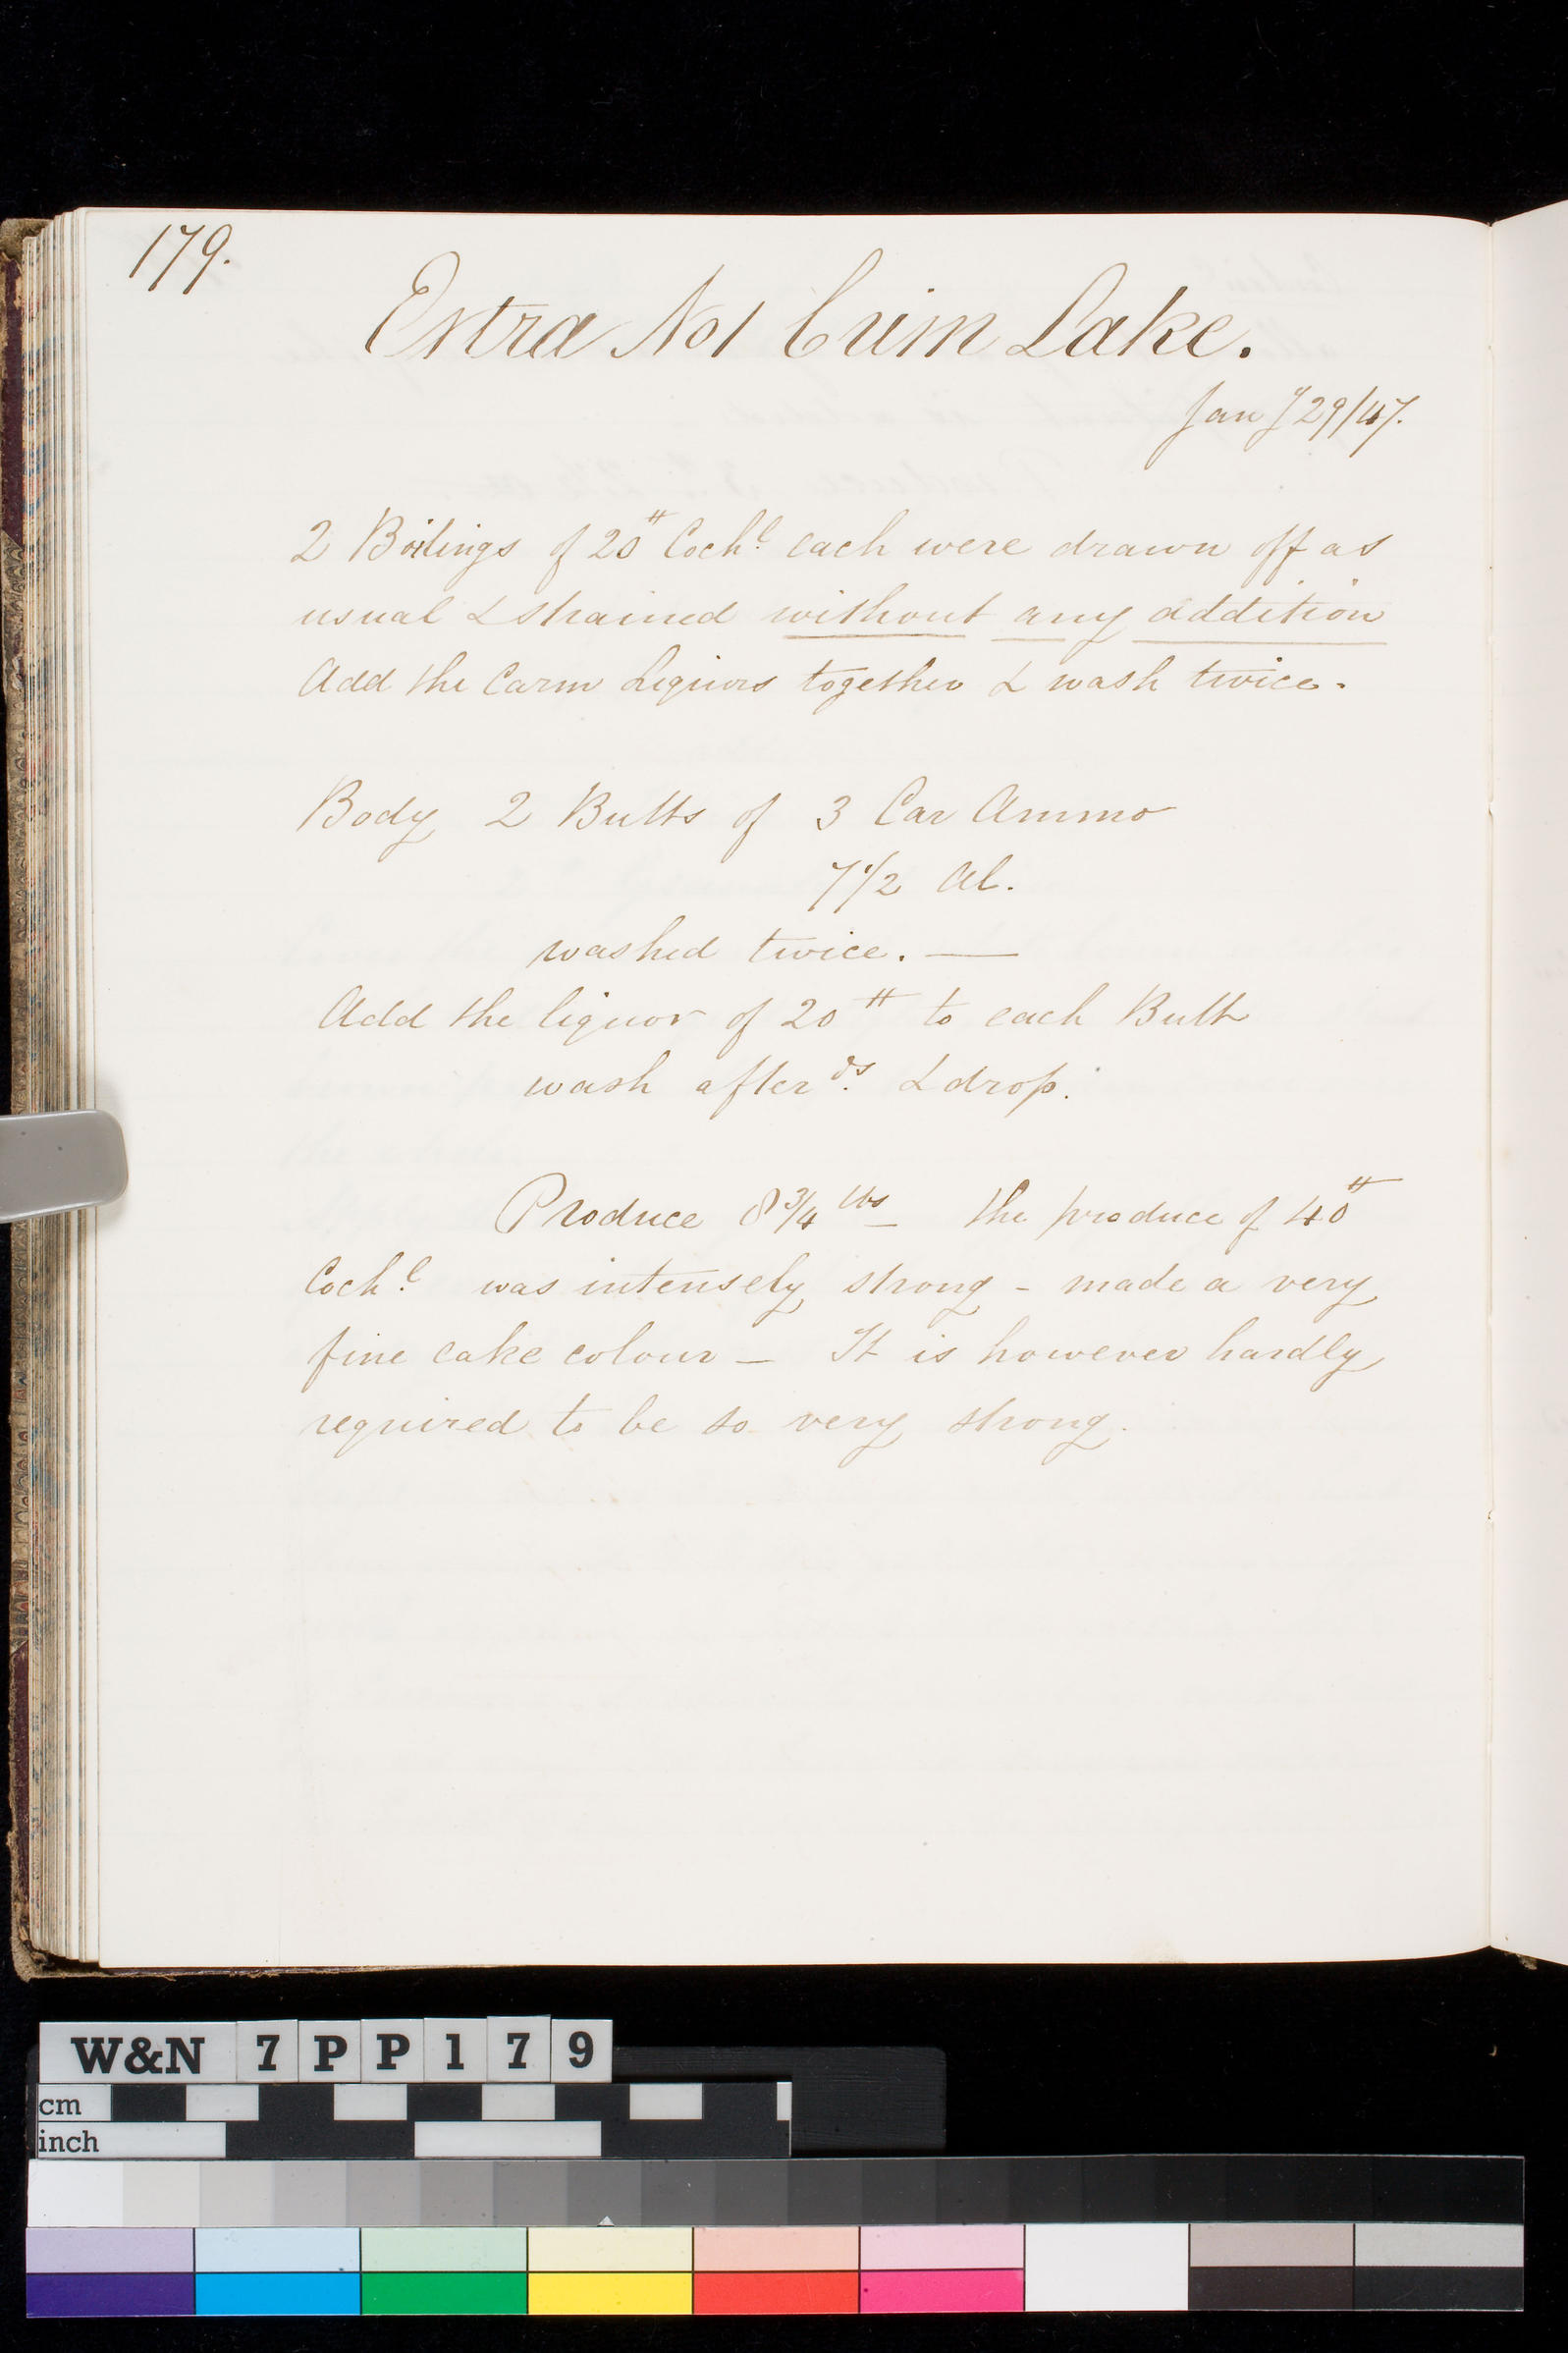 179.
Extra No1 Crim Lake.
Jany 29/47.
2 Boilings of 20 # Cochl. each were drawn off as
usual & strained without any addition
Add the Carm Liquors together & wash twice.
Body 2 Butts of 3 Car Ammo
7 1/2 Al.
washed twice. —
Add the liquor of 20 # to each Butt
wash afterds. & drop.
Produce 8 3/4 lbs — the produce of 40 #
Cochl. was intensely strong - made a very
fine cake colour — It is however hardly
required to be so very strong.
W&N 7PP179
cm
inch